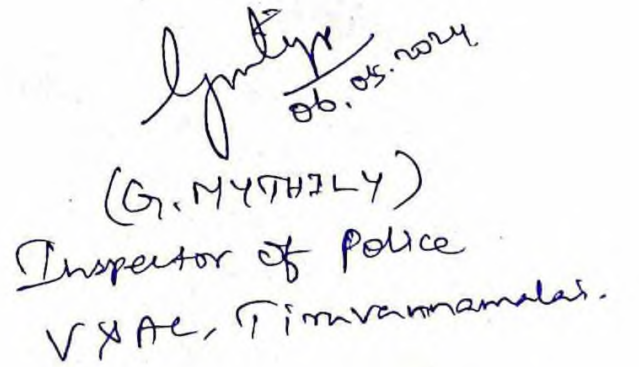 06.05.2024
(G. MYTHILY)
Inspector of Police
V&AC, Tiruvannamalai.